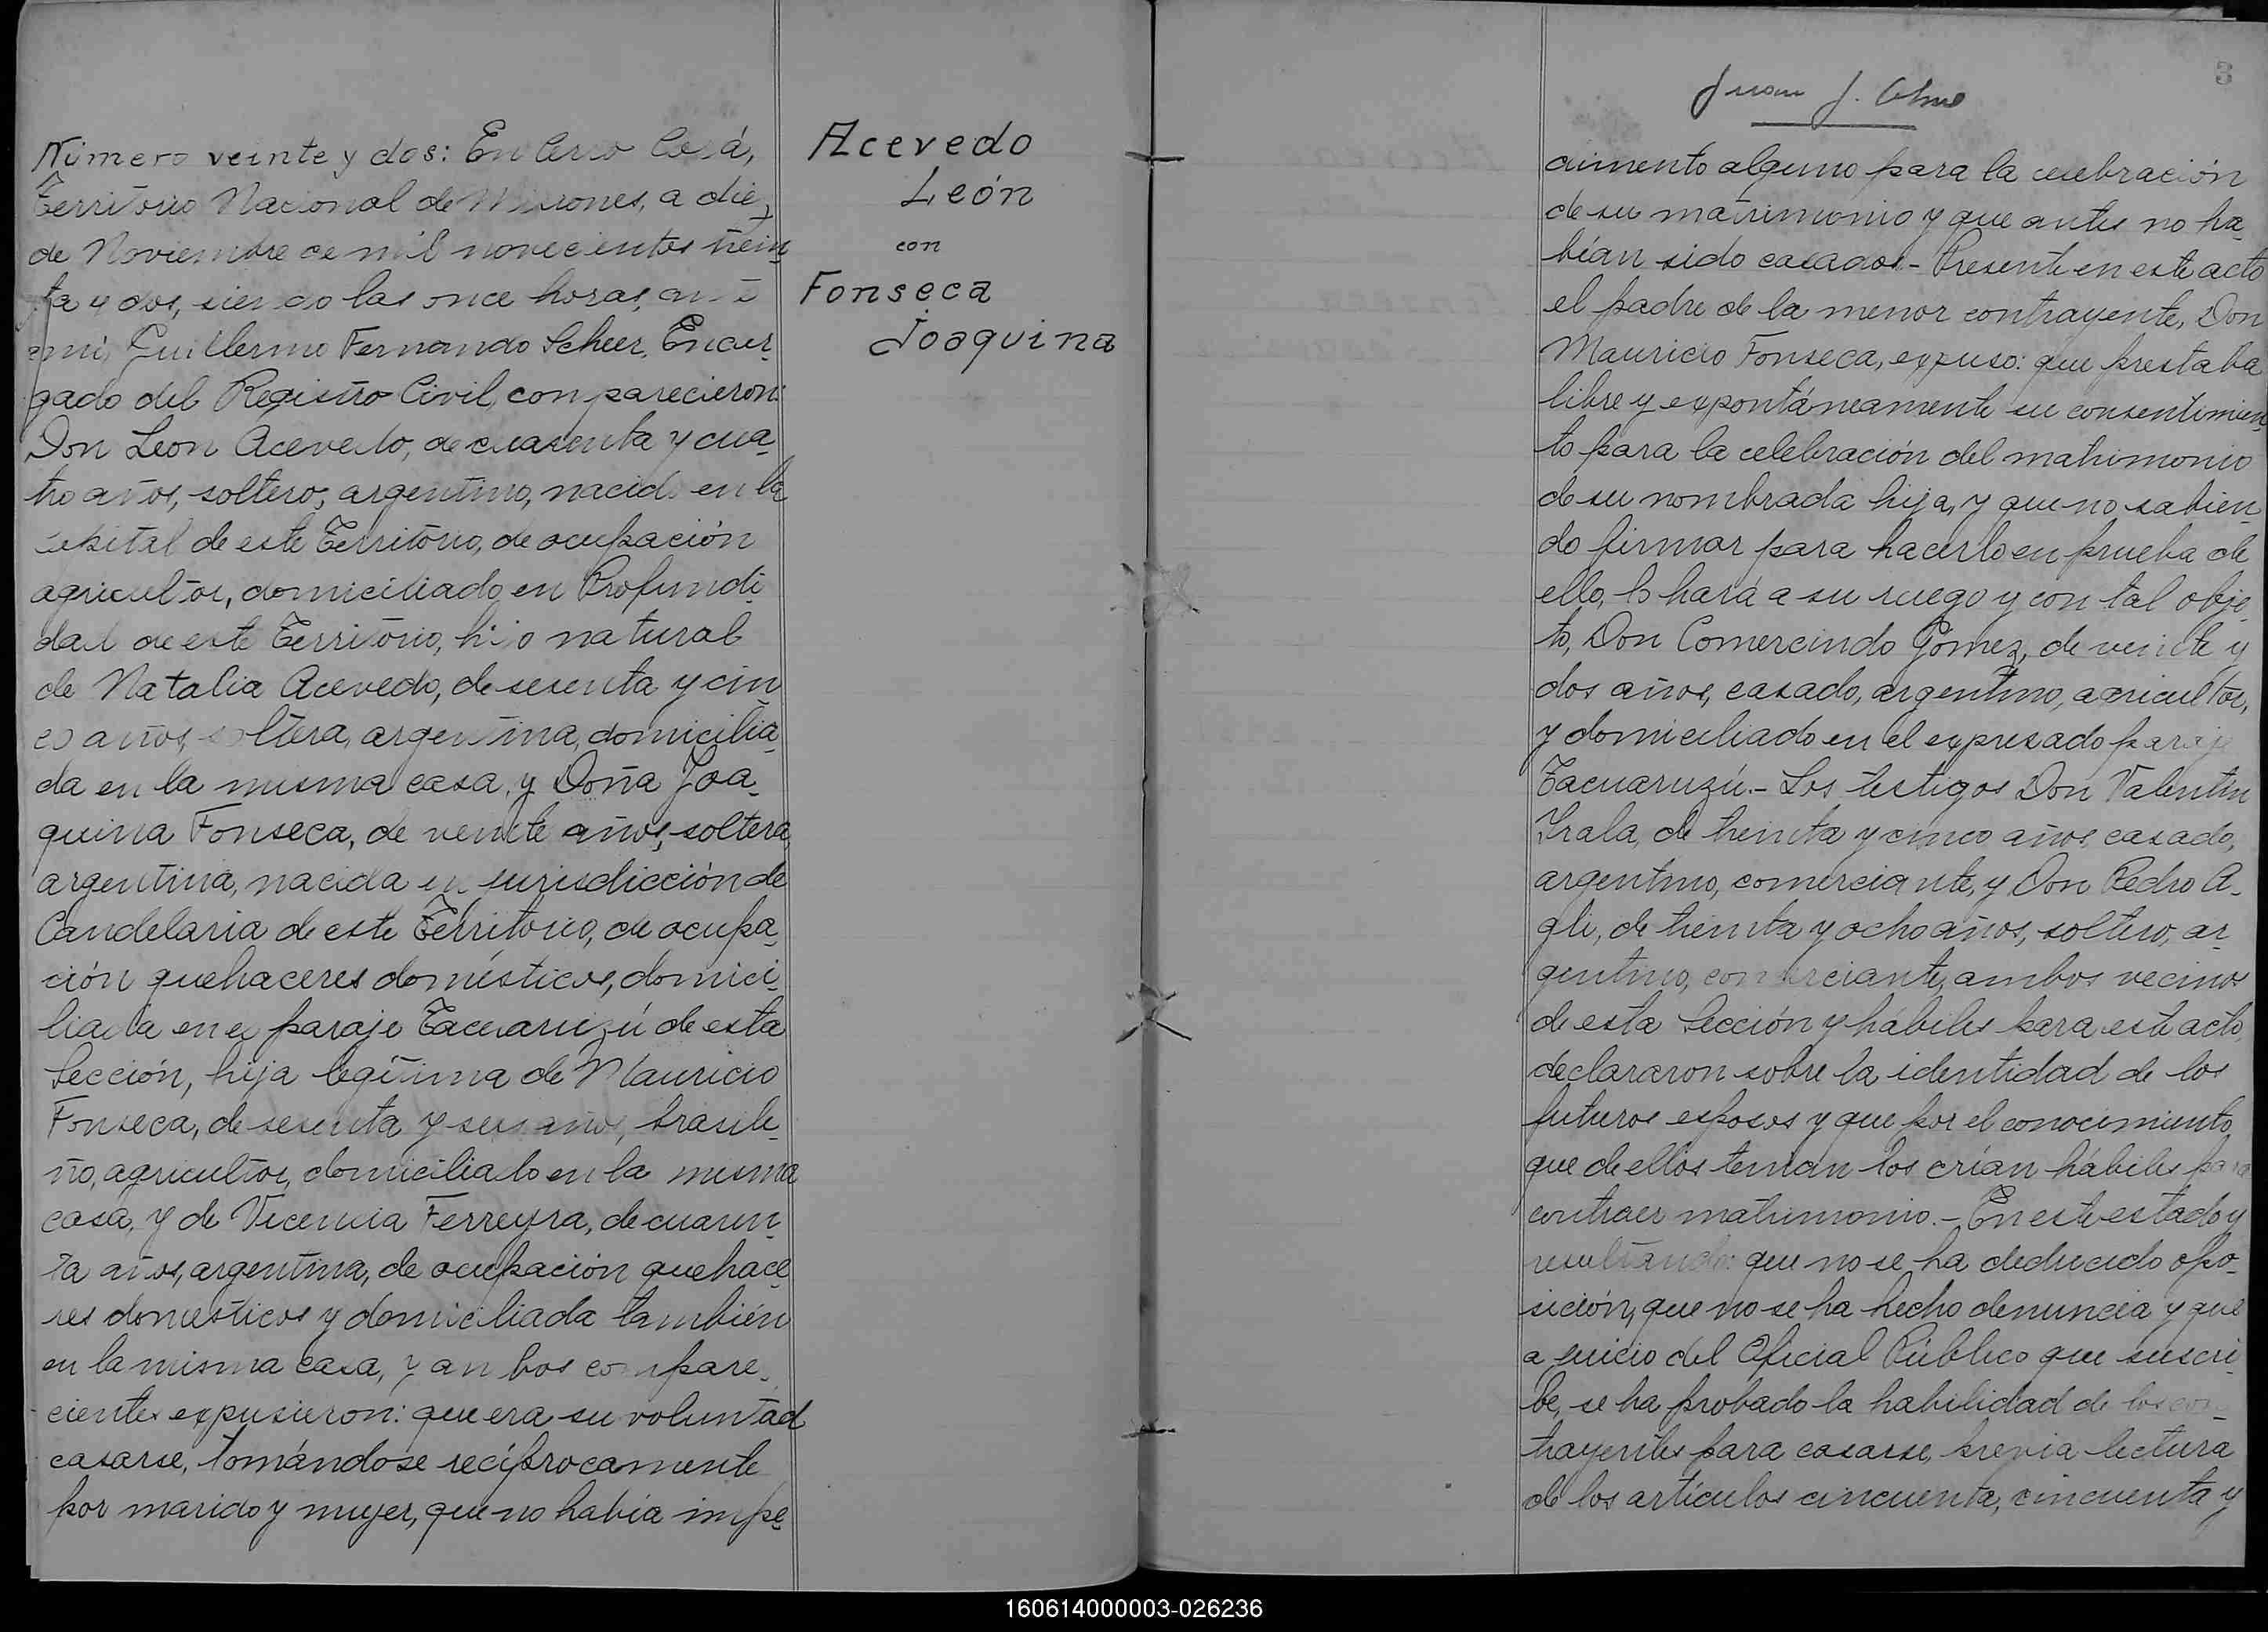 Número veinte y dos: En Cerro Corá,
Territorio Nacional de Misiones, a diez
de Noviembre de mil novecientos trein-
ta y dos, siendo las once horas, ante
mi, Guillermo Fernando Scheer, Encar-
gado del Registro Civil, comparecieron:
Don Leon Acevedo, de cuarenta y cua-
tro años, soltero, argentino, nacido en la
capital de este Territorio, de ocupación
agricultor, domiciliado en Profundi-
dad de este Territorio, hijo natural
de Natalia Acevedo, de sesenta y cin-
co años, soltera, argentina, domicilia-
da en la misma casa, y Doña Joa-
quina Fonseca, de veinte años, soltera,
argentina, nacida en jurisdicción de
Candelaria de este Territorio, de ocupa-
ción quehaceres domésticos, domici-
liada en el paraje Tacuaruzú de esta
Sección, hija legítima de Mauricio
Fonseca, de sesenta y seis años, brasile-
ño, agricultor, domiciliado en la misma
casa, y de Vicencia Ferreyra, de cuaren-
ta años, argentina, de ocupación quehace-
res domésticos y domiciliada también
en la misma casa, y ambos compare-
cientes expusieron: que era su voluntad
casarse, tomándose recíprocamente
por marido y mujer, que no había impe-
Acevedo
León
con
Fonseca
Joaquina
3
Juan J.
dimento alguno para la celebración
de su matrimonio y que antes no ha-
bían sido casados.- Presente en este acto
el padre de la menor contrayente, Don
Mauricio Fonseca, expuso: que prestaba
libre y expontáneamente su consentimien-
to para la celebración del matrimonio
de su nombrada hija, y que no sabien-
do firmar para hacerlo en prueba de
ello, lo hará a su ruego y con tal obje-
to, Don Comercindo Gómez, de veinte y
dos años, casado, argentino, agricultor,
y domiciliado en el expresado paraje
Tacuaruzú.- Los testigos Don Valentín
Irala, de treinta y cinco años, casado,
argentino, comerciante, y Don Pedro A-
gli, de treinta y ocho años, soltero, ar-
gentino, comerciante, ambos vecinos
de esta Sección y hábiles para este acto,
declararon sobre la identidad de los
futuros esposos y que por el conocimiento
que de ellos tenían los crían hábiles para
contraer matrimonio.- En este estado y
resultando: que no se ha deducido opo-
sición, que no se ha hecho denuncia y que
a juicio del Oficial Público que suscri-
be, se ha probado la habilidad de los con-
trayentes para casarse, previa lectura
de los artículos cincuenta, cincuenta y
160614000003-026236